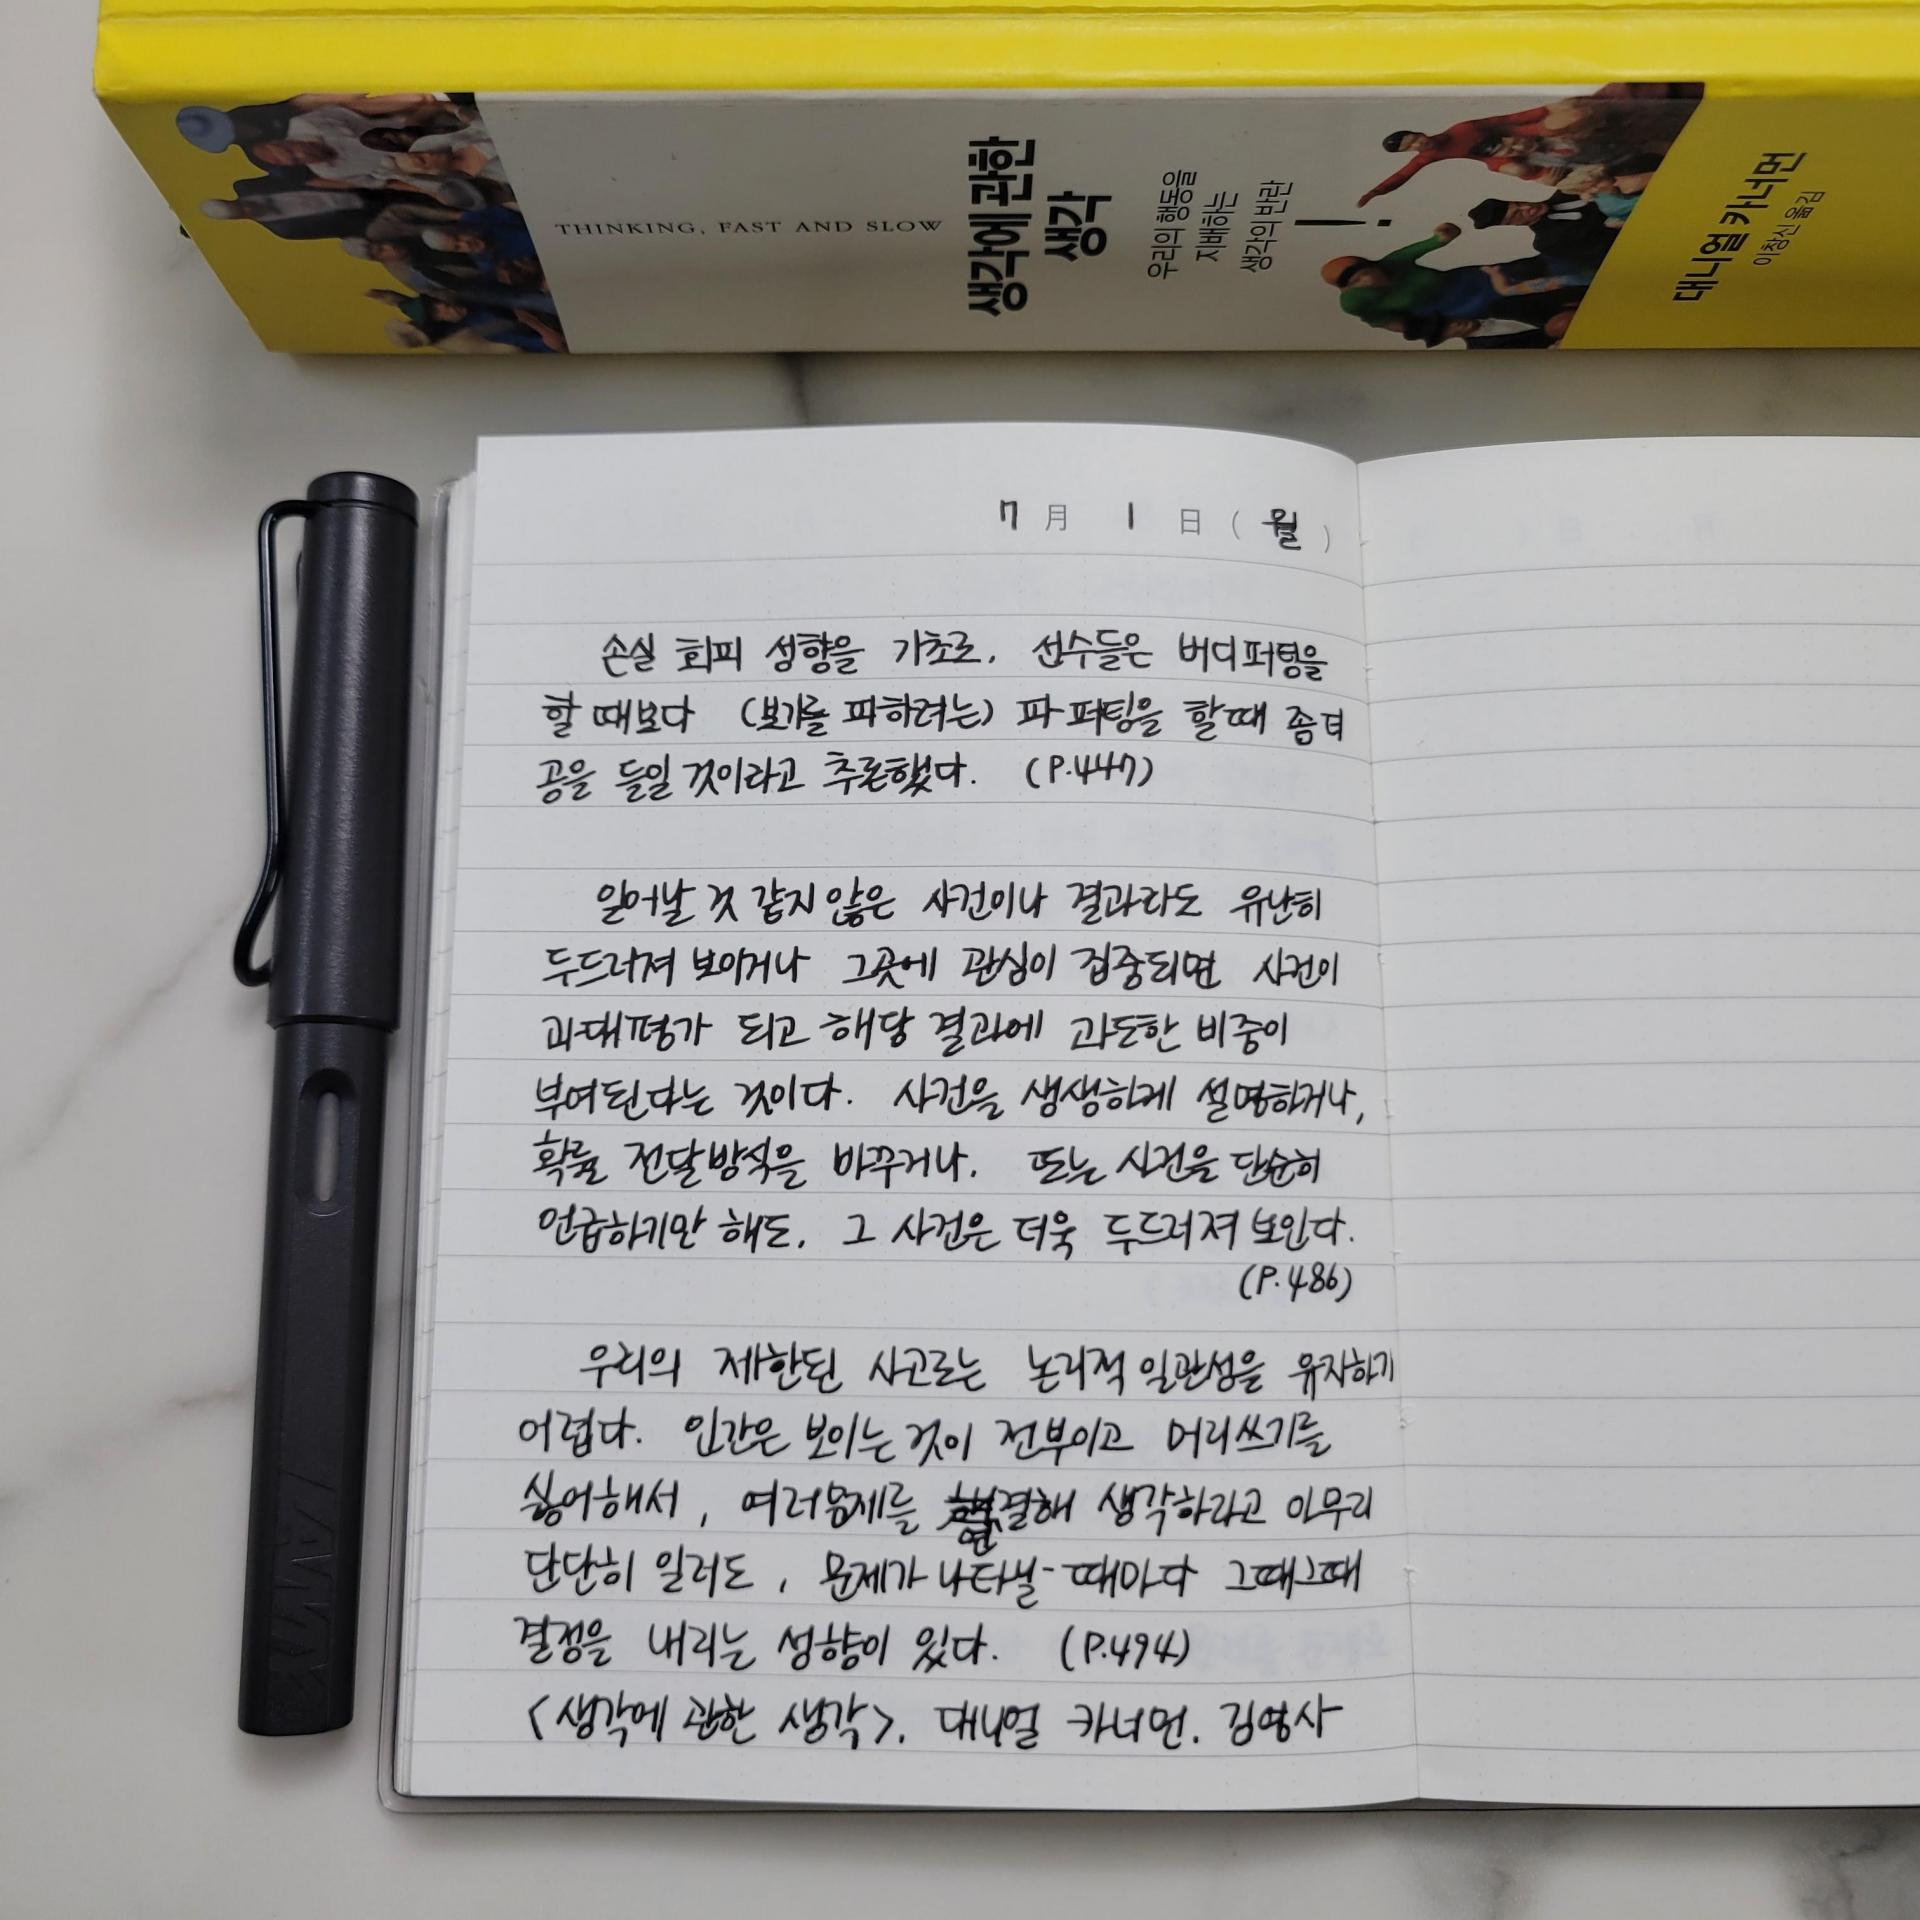 THINKING, FAST AND SLOW
생각에 관한
생각
우리의 행동을
지배하는
생각의 반란
!
대니얼 카너먼
이창신 옮김
7 月 1 日 ( 월 )
손실 회피 성향을 기초로, 선수들은 버디퍼팅을
할 때보다 (보기를 피하려는) 파 퍼팅을 할때 좀더
공을 들일 것이라고 추론했다. (P.447)
일어날 것 같지 않은 사건이나 결과라도 유난히
두드러져 보이거나 그곳에 관심이 집중되면 사건이
과대평가 되고 해당 결과에 과도한 비중이
부여된다는 것이다. 사건을 생생하게 설명하거나,
확률 전달방식을 바꾸거나, 또는 사건을 단순히
언급하기만 해도, 그 사건은 더욱 두드러져 보인다.
(P.486)
우리의 제한된 사고로는 논리적 일관성을 유지하기
어렵다. 인간은 보이는 것이 전부이고 머리쓰기를
싫어해서, 여러문제를 연결해 생각하라고 아무리
단단히 일러도, 문제가 나타날 때마다 그때그때
결정을 내리는 성향이 있다. (P.494)
<생각에 관한 생각>. 대니얼 카너먼. 김영사
LAMY